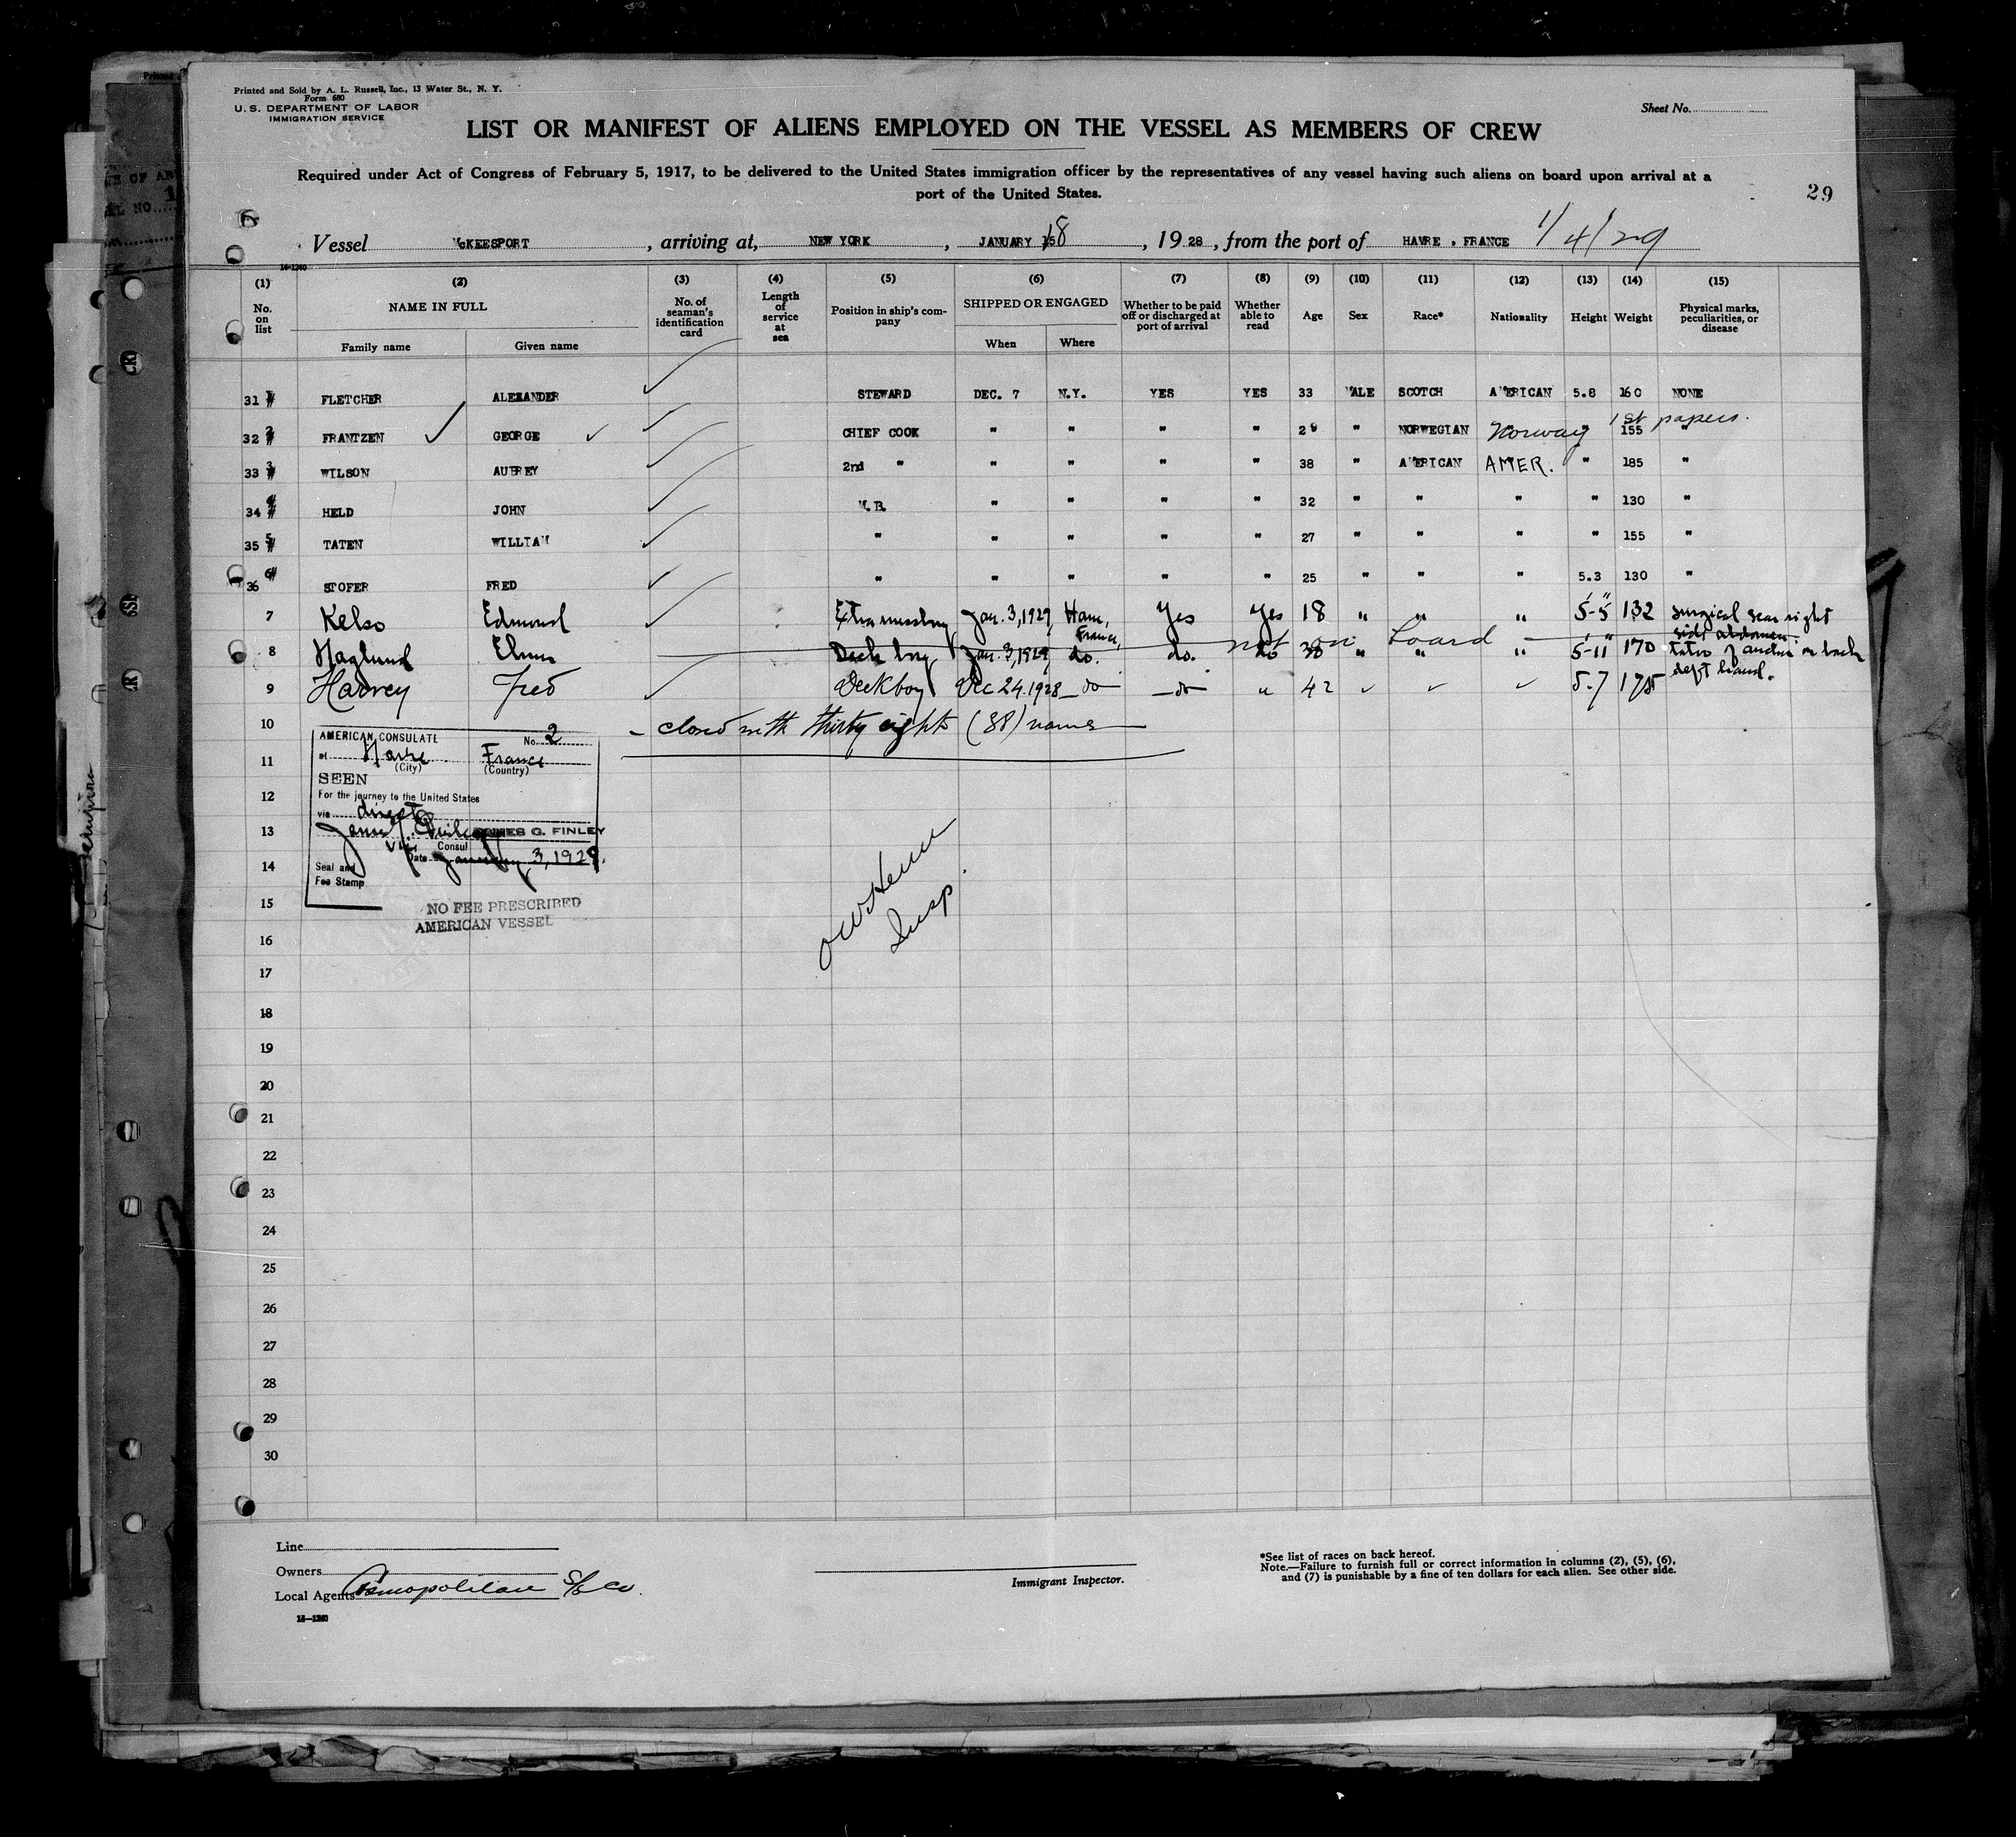 Printed and Sold by A. L. Russell, Inc., 13 Water St., N. Y.
Form 680
U. S. DEPARTMENT OF LABOR
IMMIGRATION SERVICE
Sheet No.
LIST OR MANIFEST OF ALIENS EMPLOYED ON THE VESSEL AS MEMBERS OF CREW
Required under Act of Congress of February 5, 1917, to be delivered to the United States immigration officer by the representatives of any vessel having such aliens on board upon arrival at a
port of the United States.
29
Vessel McKEESPORT, arriving at, NEW YORK, JANUARY 8, 1928, from the port of HAVRE, FRANCE 1/4/29
14-1240
(1) No. on list
(2) NAME IN FULL Family name Given name
(3) No. of seaman's identification card
(4) Length of service at sea
(5) Position in ship's company
(6) SHIPPED OR ENGAGED When Where
(7) Whether to be paid off or discharged at port of arrival
(8) Whether able to read
(9) Age
(10) Sex
(11) Race*
(12) Nationality
(13) Height
(14) Weight
(15) Physical marks, peculiarities, or disease
31 FLETCHER ALEXANDER STEWARD DEC. 7 N.Y. YES YES 33 MALE SCOTCH AMERICAN 5.8 160 NONE
1st papers.
32 FRANTZEN GEORGE CHIEF COOK " " " " " NORWEGIAN Norway 155 "
33 WILSON AUBREY 2nd " " " " " 38 " AMERICAN AMER. " 185 "
34 HELD JOHN M.B. " " " " 32 " " " " 130 "
35 TATEN WILLIAM " " " " " 27 " " " " 155 "
36 STOFER FRED " " " " " 25 " " " 5.3 130 "
7 Kelso Edmund Extra messboy Jan. 3, 1929 Havre, France, Yes Yes 18 " " " 5-5 132 surgical scar right side abdomen.
8 Haglund Elmer Deck boy Jan. 3, 1929 do. do. do " " " 5-11 170 tatoo of anchor on back left hand.
not on board
9 Harvey Fred Deckboy Dec 24. 1928 do do " 42 5.7 175
10 closed with thirty eight (38) names
11
12
13
14
15
16
17
18
19
20
21
22
23
24
25
26
27
28
29
30
AMERICAN CONSULATE No. 2
at Havre France
(City) (Country)
SEEN
For the journey to the United States
via direct
JAMES G. FINLEY
Vice Consul
Date January 3, 1929.
Seal and
Fee Stamp
NO FEE PRESCRIBED
AMERICAN VESSEL
Insp.
Line
Owners
Local Agents Cosmopolitan S/S Co.
14-1240
Immigrant Inspector.
*See list of races on back hereof.
Note.—Failure to furnish full or correct information in columns (2), (5), (6),
and (7) is punishable by a fine of ten dollars for each alien. See other side.